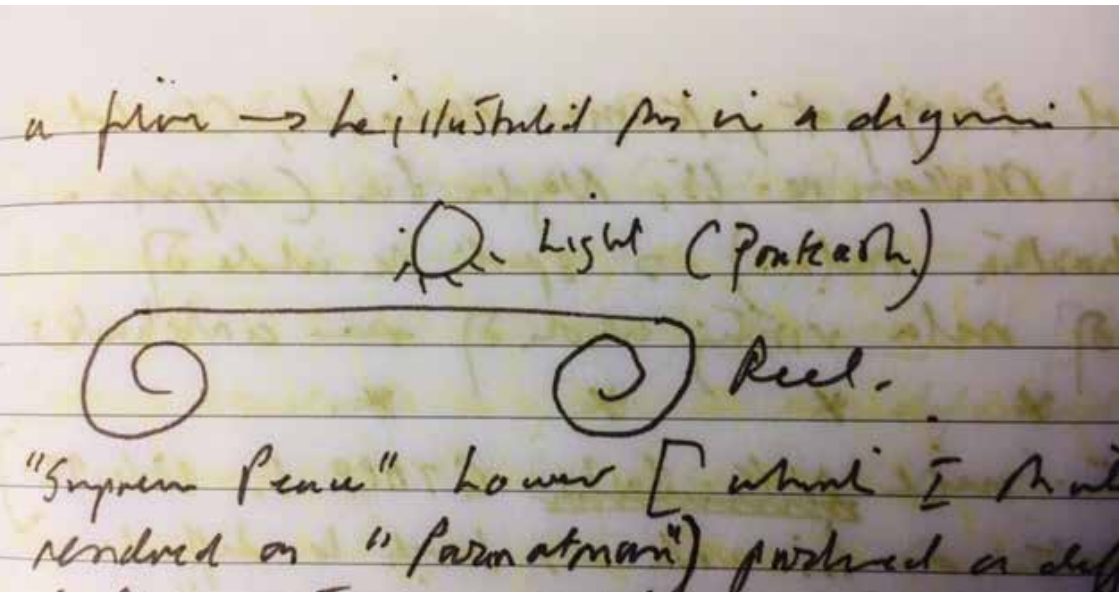 a film → he illustrated this in a diagram
Light (Prakash)
Reel.
"Supreme Peace" However [which I think
rendered as "Paramatman") produced a diff